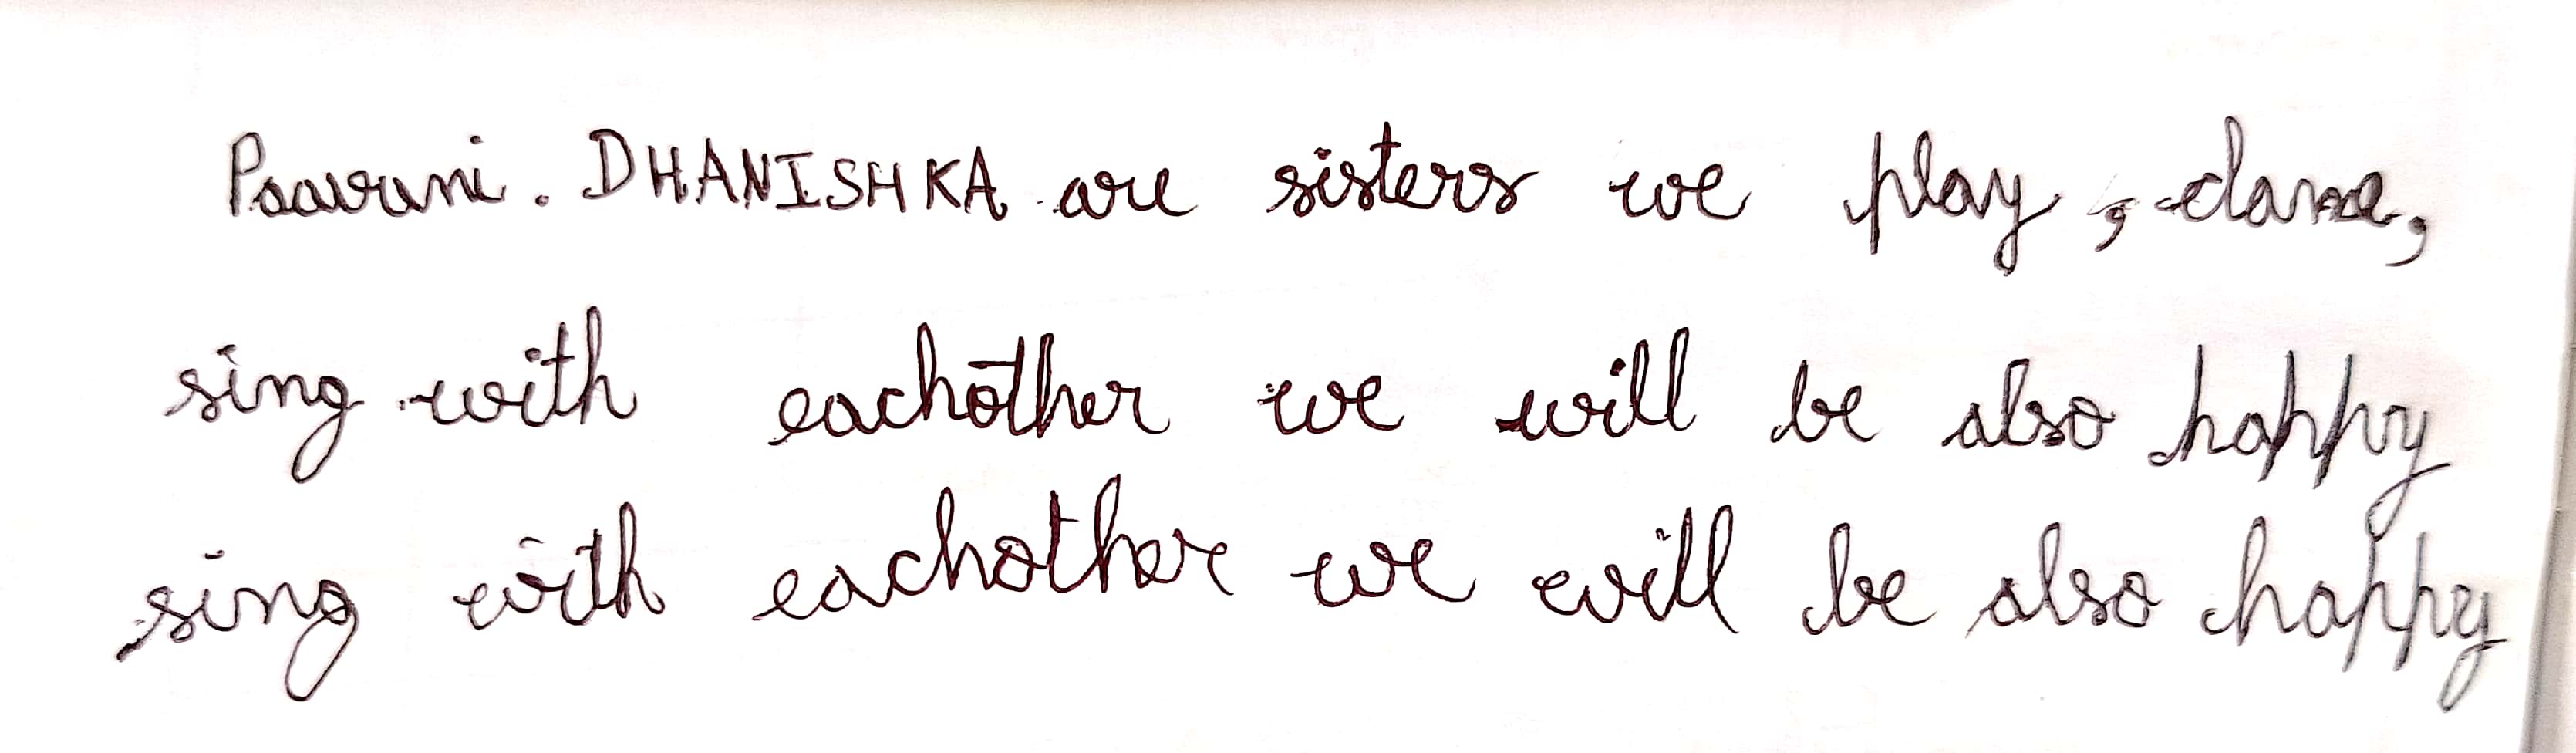 Paavani. DHANISHKA are sisters we play, dance,
sing with eachother we will be also happy
sing with eachother we will be also happy